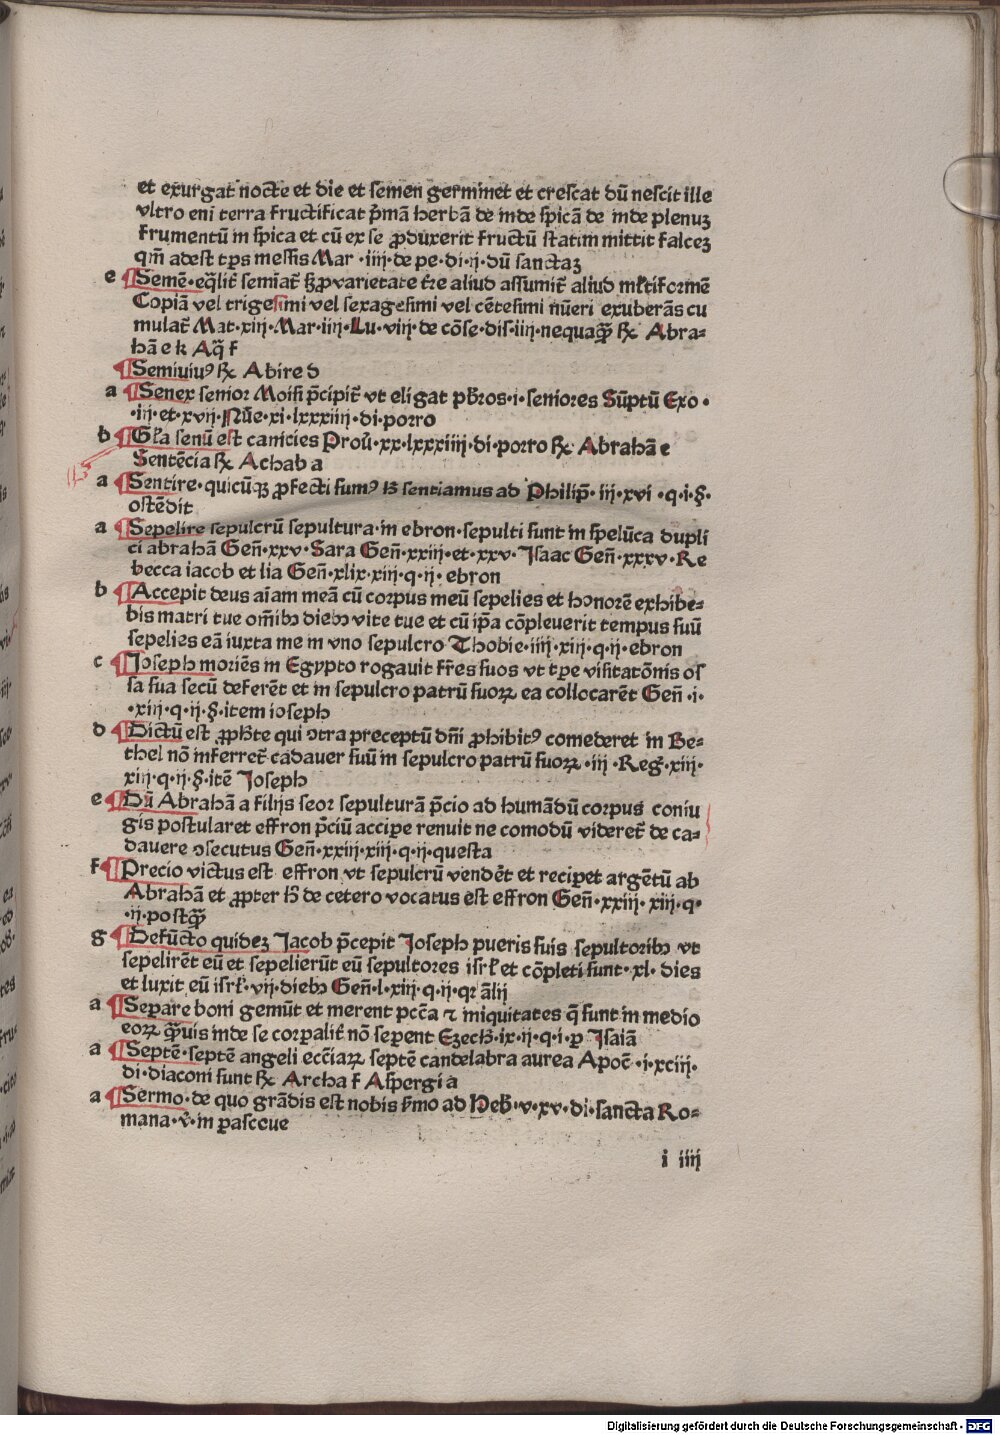 et exurgat nocte et die et semen germinet et crescat dū nescit ille
vltro eni terra fructificat p̄mā herbā de inde spicā de inde plenuȝ
frumentū in spica et cū ex se ꝓduxerit fructū statim mittit falceȝ
qm̄ adest tp̄s messis Mar ·iiij· de pe·di·ij·dū sanctaȝ
e ¶Semē·eq̄lit̄ semiat̄ sꝫ ꝓ varietate t̄re aliud assumit̄ aliud ml̄tiformē
Copiā vel trigesimi vel sexagesimi vel cētesimi nūeri exuberās cu
mulat̄ Mat·xiij·Mar·iiij·Lu·viij·de cōse·dis·iiij·nequaq̄ꝫ ℞ Abra-
hā e k Aq̄ f
¶Semiuiuꝰ ℞ Abire d
a ¶Senex senior Moisi p̄cipit̄ vt eligat pb̄ros·i·seniores Sūptū Exo·
·iij·et·xvij·Nūe·xi·lxxxiiij·di·porro
b ¶Gl̄a senū est canicies Prou̇·xx·lxxxiiij·di·porro ℞ Abrahā e
Sentēcia ℞ Achab a
a ¶Sentire·quicūqꝫ ꝓfecti sumꝰ h̄ sentiamus ad Philip̄·iij·xvi·q·i·§·
ostēdit
a ¶Sepelire sepulcrū sepultura·in ebron·sepulti sunt in spelūca dupli
ci abrahā Geñ·xxv·Sara Geñ·xxiij·et·xxv·Isaac Geñ·xxxv·Re
becca iacob et lia Geñ·xlix·xiij·q·ij·ebron
b ¶Accepit deus aīam meā cū corpus meū sepelies et honorē exhibe-
bis matri tue om̄ibꝫ diebꝫ vite tue et cū ip̄a cōpleuerit tempus suū
sepelies eā iuxta me in vno sepulcro Thobie·iiij·xiij·q·ij·ebron
c ¶Ioseph moriēs in Egypto rogauit fr̄es suos vt tꝑe visitatōnis os
sa sua secū deferēt et in sepulcro patrū suoꝝ ea collocarēt Geñ·i·
·xiij·q·ij·§·item ioseph
d ¶Dictū est ꝓph̄te qui ↄtra preceptū dn̄i ꝓhibitꝰ comederet in Be-
thel nō inferret̄ cadauer suū in sepulcro patrū suoꝝ·iij·Reg̃·xiij·
xiij·q·ij·§·itē Ioseph
e ¶Dū Abrahā a filijs seor sepulturā p̄cio ad humādū corpus coniu
gis postularet effron p̄ciū accipe renuit ne comodū videret̄ de ca-
dauere ↄsecutus Geñ·xxiij·xiij·q·ij·questa
f ¶Precio victus est effron vt sepulcrū vendēt et recipet argētū ab
Abrahā et ꝓpter h̄ de cetero vocatus est effron Geñ·xxiij·xiij·q·
·ij·postq̄ꝫ
g ¶Defūcto quideȝ Jacob p̄cepit Joseph pueris suis sepultoribꝫ vt
sepelirēt eū et sepelierūt eū sepultores isrl̄ et cōpleti sunt·xl·dies
et luxit eū isrl̄·vij·diebꝫ Geñ·l·xiij·q·ij·qr āl̄ij
a ¶Separe boni gemūt et merent pcc̄a ⁊ iniquitates q̄ sunt in medio
eoꝝ q̄ꝫuis inde se corpalit̄ nō sepent Ezech̄·ix·ij·q·i·ꝑ Isaiā
a ¶Septē·septē angeli ecc̄iaꝝ septē candelabra aurea Apoc̄·i·xciij·
di·diaconi sunt ℞ Archa f Aspergi a
a ¶Sermo·de quo grādis est nobis s̄mo ad Heb̄·v·xv·di·sancta Ro-
mana·v̇·in pasceue
i iiij
Digitalisierung gefördert durch die Deutsche Forschungsgemeinschaft - DFG